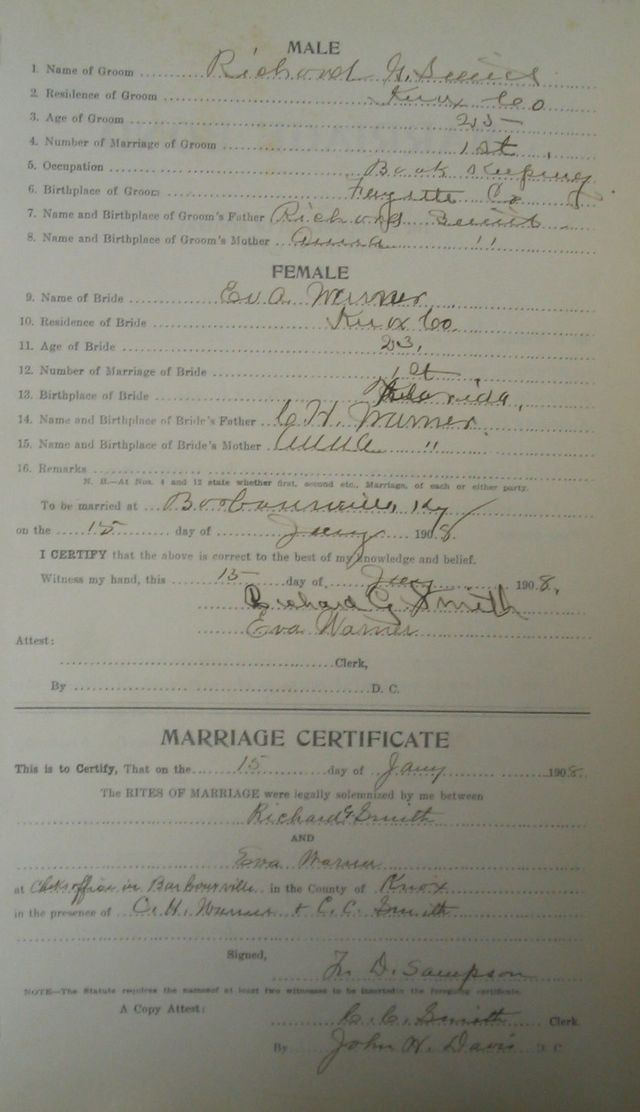 MALE
1. Name of Groom Richard G. Smith
2. Residence of Groom Knox Co
3. Age of Groom 25
4. Number of Marriage of Groom 1st
5. Occupation Book Keeping
6. Birthplace of Groom Fayette Co
7. Name and Birthplace of Groom's Father Richard Smith
8. Name and Birthplace of Groom's Mother Anna "
FEMALE
9. Name of Bride Eva Warner
10. Residence of Bride Knox Co.
11. Age of Bride 23.
12. Number of Marriage of Bride 1st
13. Birthplace of Bride Florida,
14. Name and Birthplace of Bride's Father C H. Warner
15. Name and Birthplace of Bride's Mother Anna "
16. Remarks
N. B.—At Nos. 4 and 12 state whether first, second etc., Marriage, of each or either party.
To be married at Barbourville, Ky
on the 15 day of Jany 1908.
I CERTIFY that the above is correct to the best of my knowledge and belief.
Witness my hand, this 15 day of Jany 1908.
Richard G. Smith
Eva Warner
Attest:
Clerk,
By D. C.
MARRIAGE CERTIFICATE
This is to Certify, That on the 15 day of Jany 1908.
The RITES OF MARRIAGE were legally solemnized by me between
Richard G Smith
AND
Eva Warner
at Clerks office in Barbourville in the County of Knox
in the presence of C. H. Warner + C. C. Smith
Signed,
D. Sampson
NOTE—The Statute requires the names of at least two witnesses to be inserted in the foregoing certificate.
A Copy Attest:
C. C. Smith Clerk
By John H. Davis D. C